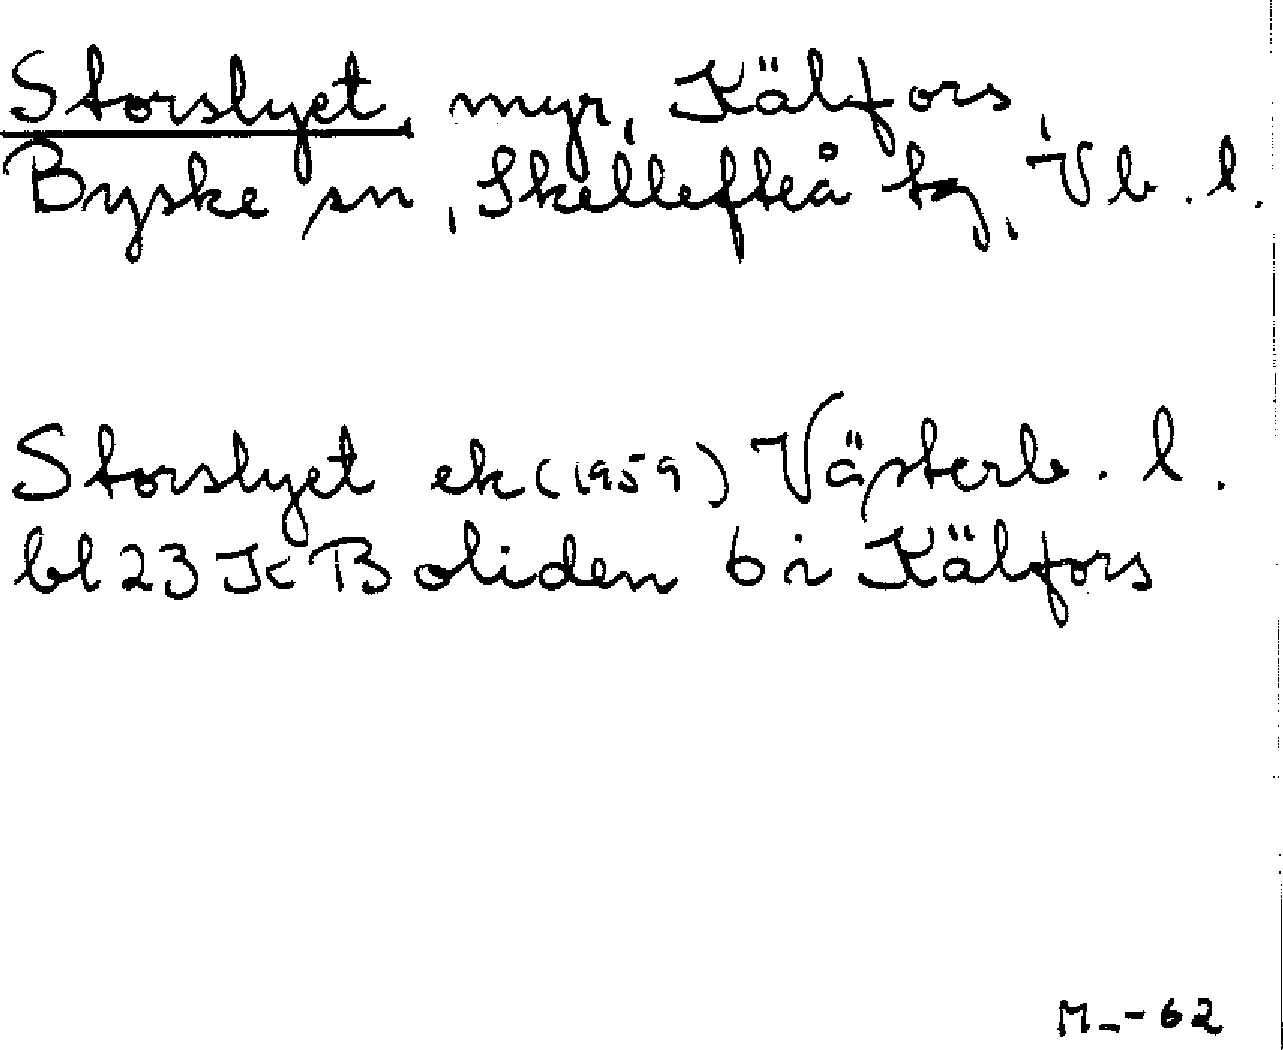 Storslyet, myr, Kälfors,
Byske sn, Skellefteå tg, Vb. l.
Storslyet ek (1959) Västerb. l.
bl 23 K Boliden 6 i Kälfors
M--62